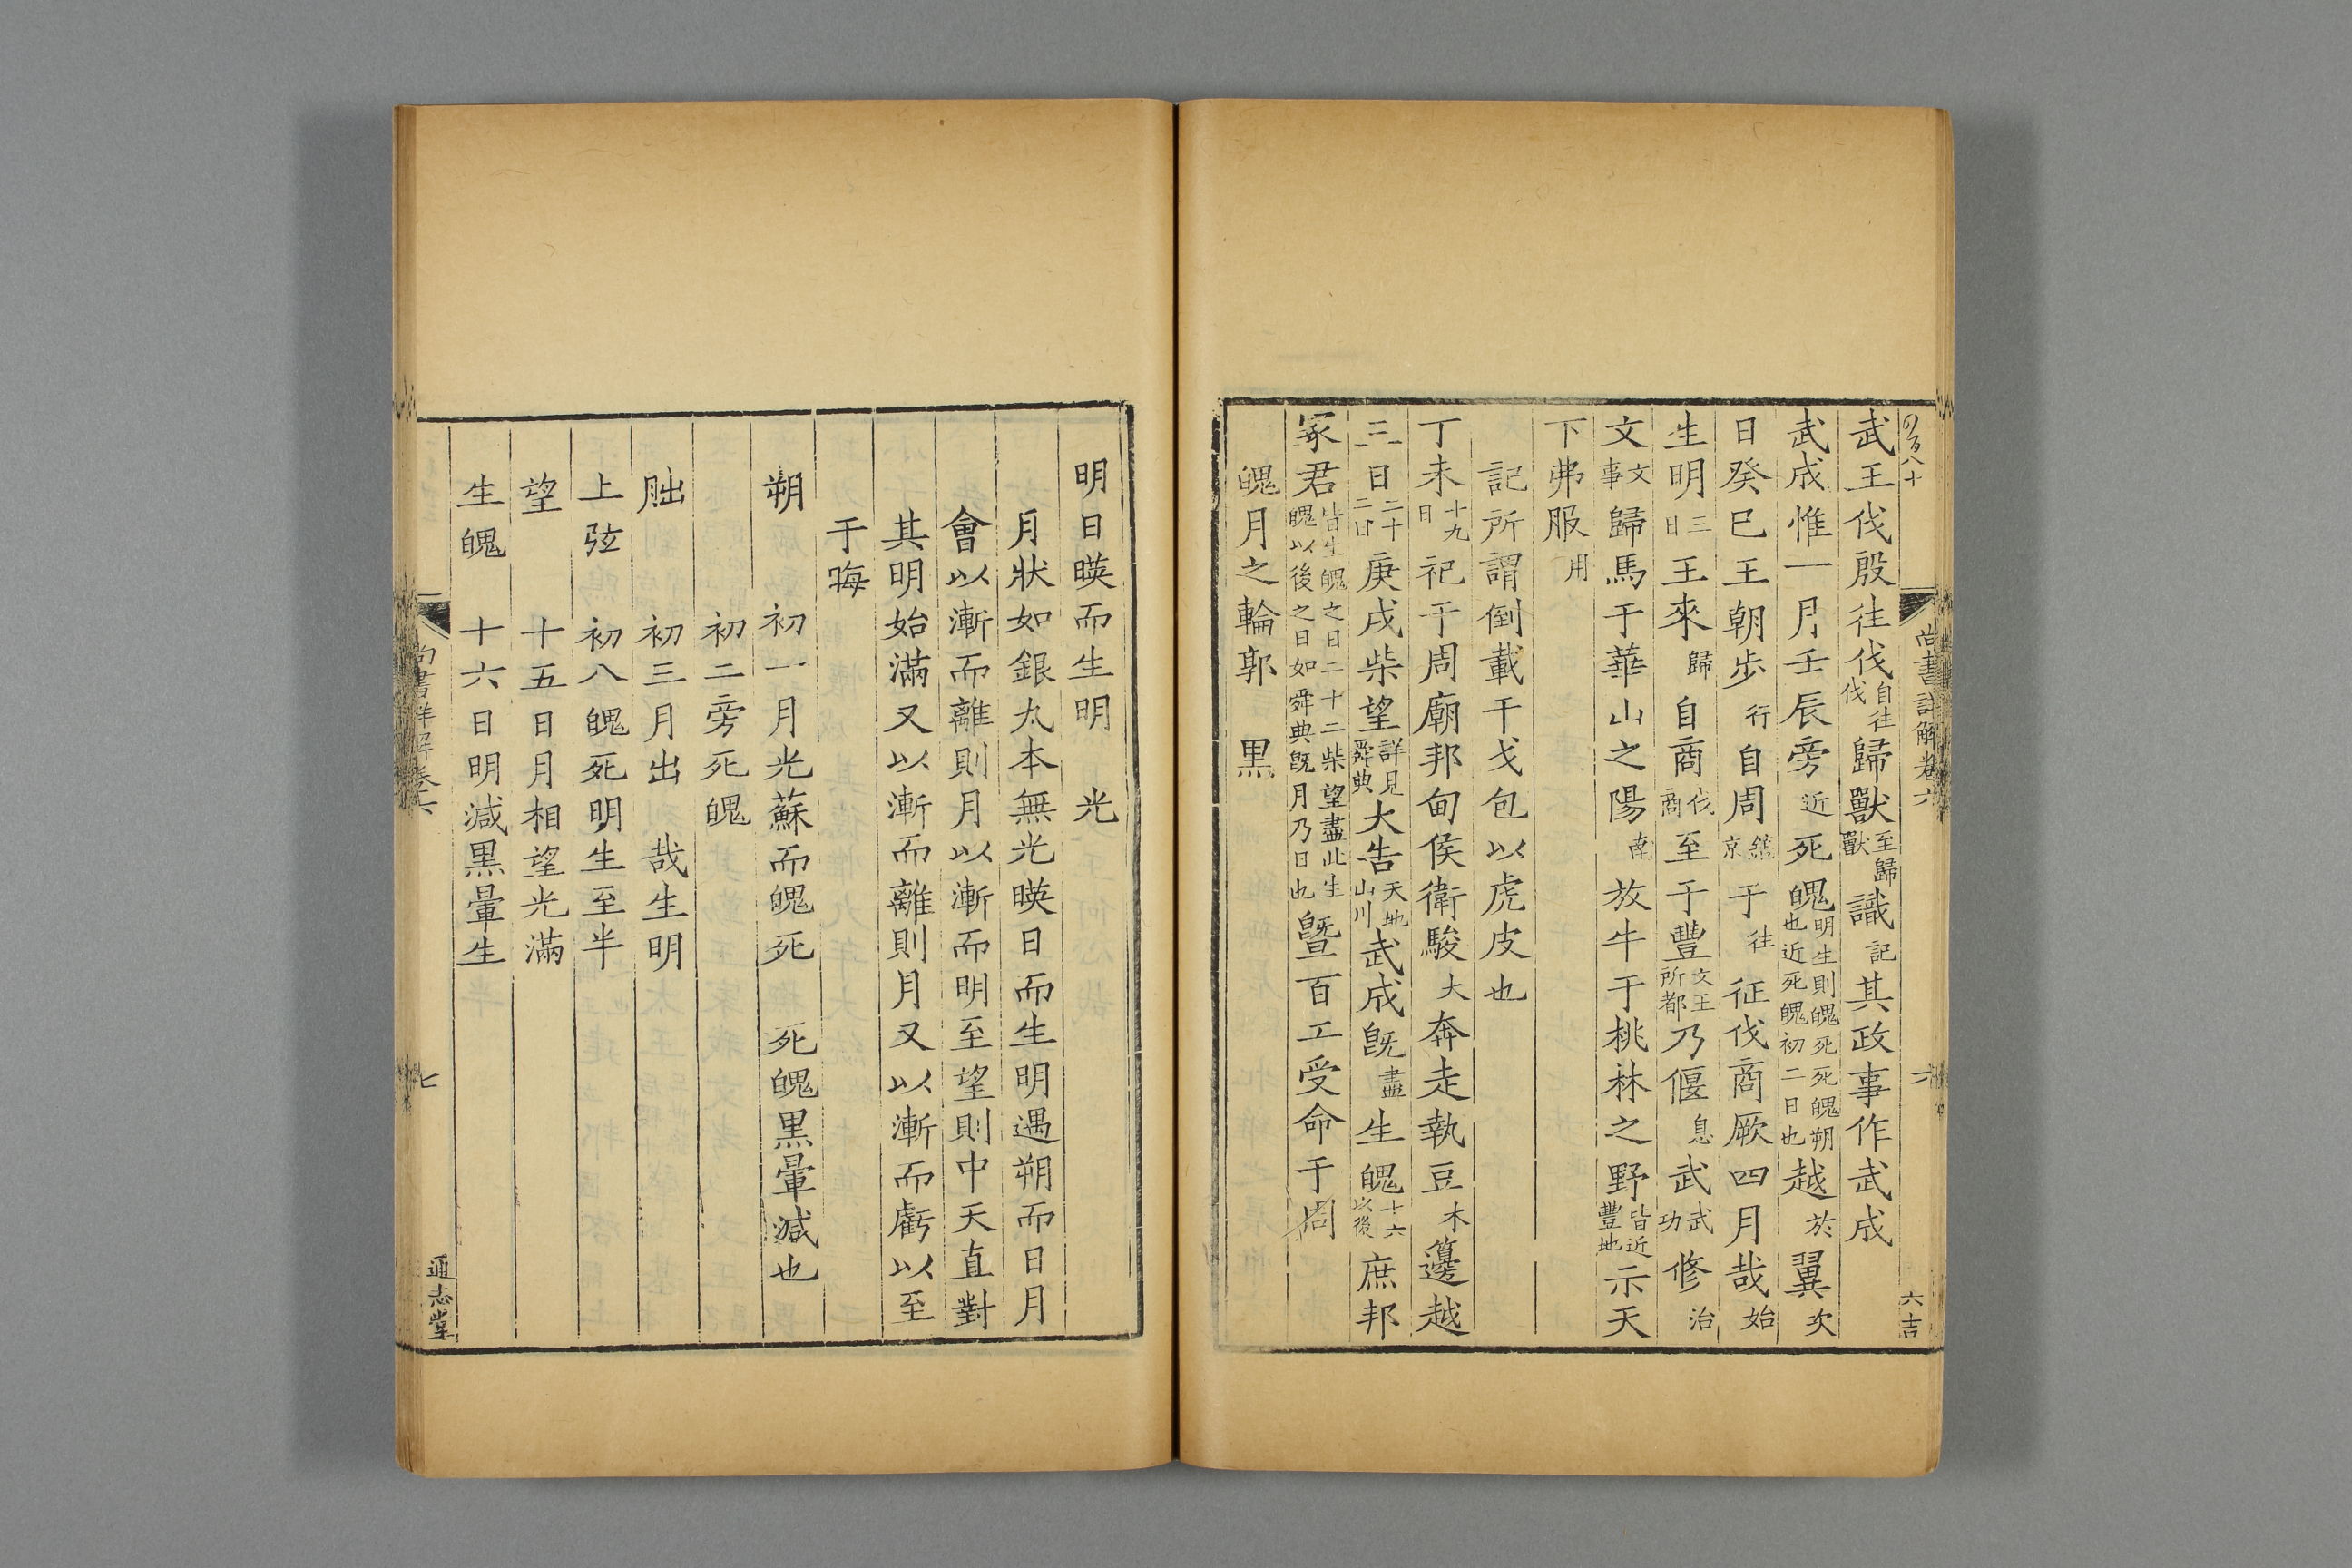 武王伐殷往伐自往伐歸獸至歸獸識記其政事作武成
武成惟一月壬辰旁近死魄明生則魄死死魄朔也近死魄初二日也越於翼次
日癸巳王朝步行自周鎬京于往征伐商厥四月哉始
生明三日王來歸自商伐商至于豐文王所都乃偃息武武功修治
文文事歸馬于華山之陽南放牛于桃林之野皆近豐地示天
下弗服用
記所謂倒載干戈包以虎皮也
丁未十九日祀于周廟邦甸侯衛駿大奔走執豆木籩越
三日二十二日庚戌柴望詳見舜典大告天地山川武成旣盡生魄十六以後庶邦
冢君皆生魄之日二十二柴望盡此生魄以後之日如舜典旣月乃日也曁百工受命于周
魄月之輪郭 黒
尚書詳解卷六
六吉
明日暎而生明 光
月狀如銀丸本無光暎日而生明遇朔而日月
會以漸而離則月以漸而明至望則中天直對
其明始滿又以漸而離則月又以漸而虧以至
于晦
朔 初一月光蘇而魄死 死魄黒暈減也
初二旁死魄
朏 初三月出 哉生明
上弦 初八魄死明生至半
望 十五日月相望光滿
生魄 十六日明減黒暈生
尚書詳解卷六
七
通志堂